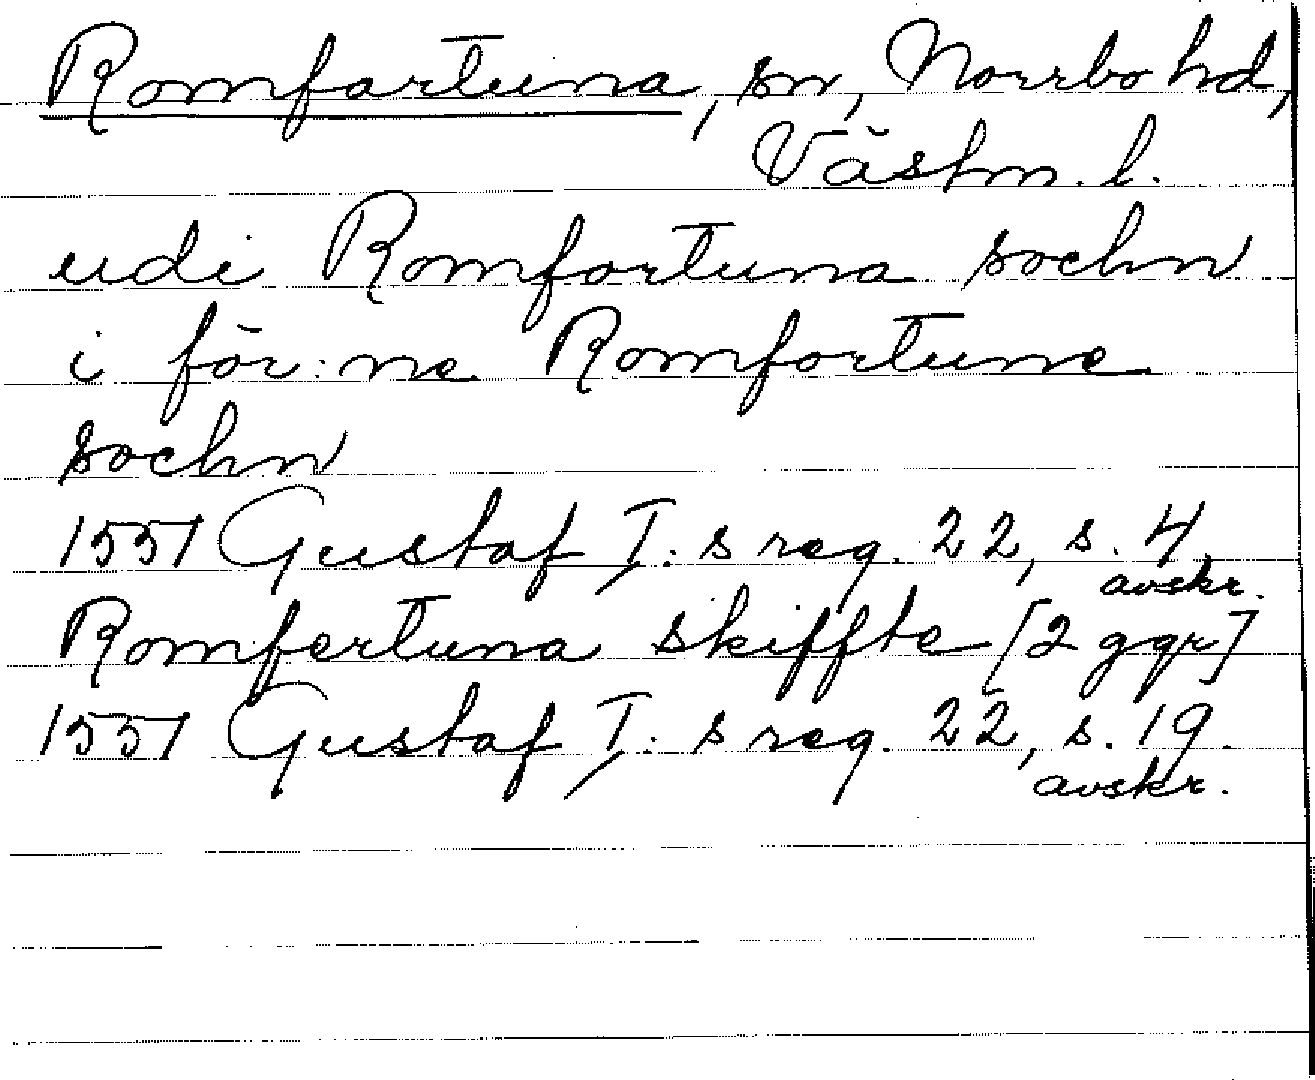 Romfartuna, sn, Norrbo hd,
Västm. l.
udi Romfortuna sochn
i för:ne Romfortune
sochn
1551 Gustaf I:s reg. 22, s. 4.
avskr.
Romfertuna skiffte [2 ggr]
1551 Gustaf I:s reg. 22, s. 19.
avskr.